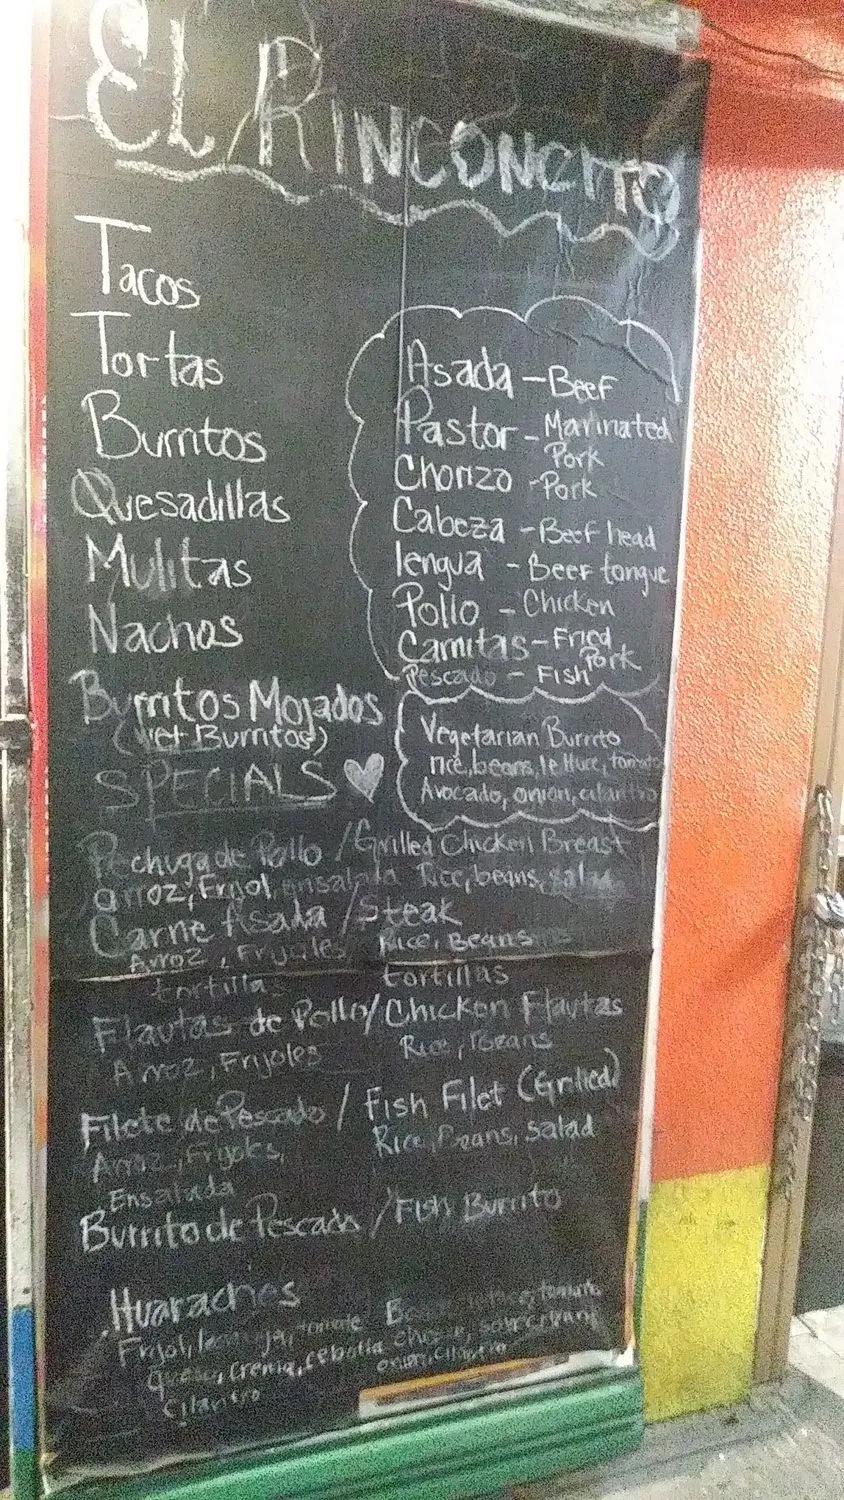 EL RINCONCITO
Tacos
Tortas
Burritos
Quesadillas
Mulitas
Nachos
Burritos Mojados
(Wet Burritos)
Asada - Beef
Pastor - Marinated
Pork
Chorizo - Pork
Cabeza - Beef head
lengua - Beef tongue
Pollo - Chicken
Carnitas - Fried
Pork
Pescado - Fish
Vegetarian Burrito
rice, beans, lettuce, tomato
Avocado, onion, cilantro
SPECIALS
Pechuga de Pollo / Grilled Chicken Breast
arroz, Frijol, ensalada Rice, beans, salad
Carne Asada / Steak
Arroz, Frijoles Rice, Beans
tortillas tortillas
Flautas de Pollo / Chicken Flautas
Arroz, Frijoles Rice, Beans
Filete de Pescado / Fish Filet (Grilled)
Arroz, Frijoles, Rice, Beans, salad
Ensalada
Burrito de Pescado / Fish Burrito
Huaraches
Frijol, lechuga, tomate
queso, crema, cebolla
cilantro
tomato
cheese, sour cream
onion, cilantro